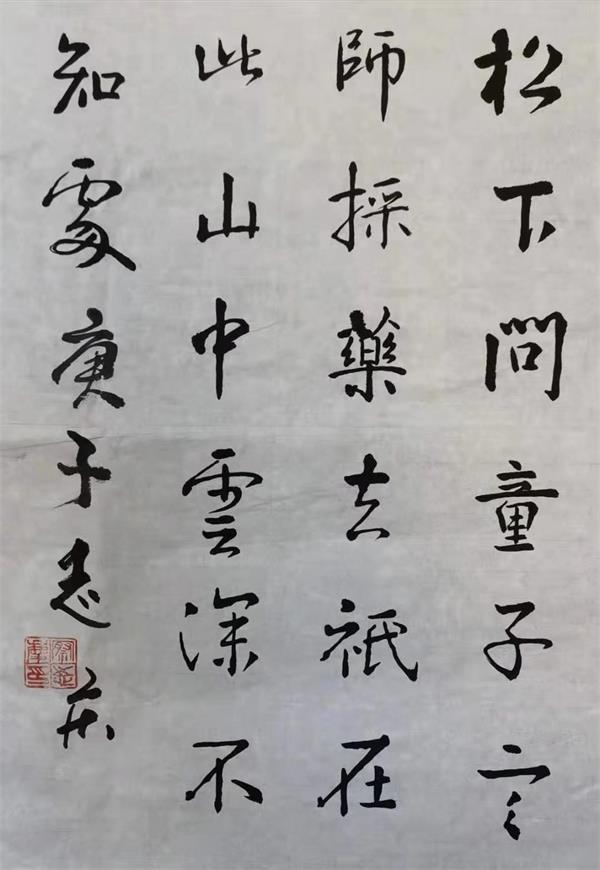 松下問童子言
師採藥去祇在
此山中雲深不
知處庚子志